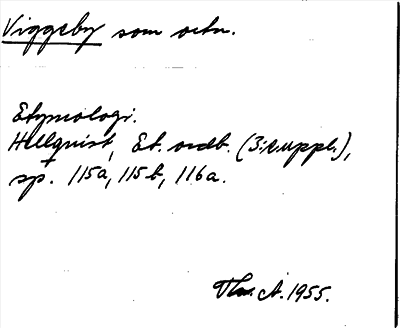 Viggeby som ortn.
Etymologi.
Hellquist, Et. ordb. (3:e uppl.),
sp. 115a, 115b, 116a.
A. 1955.